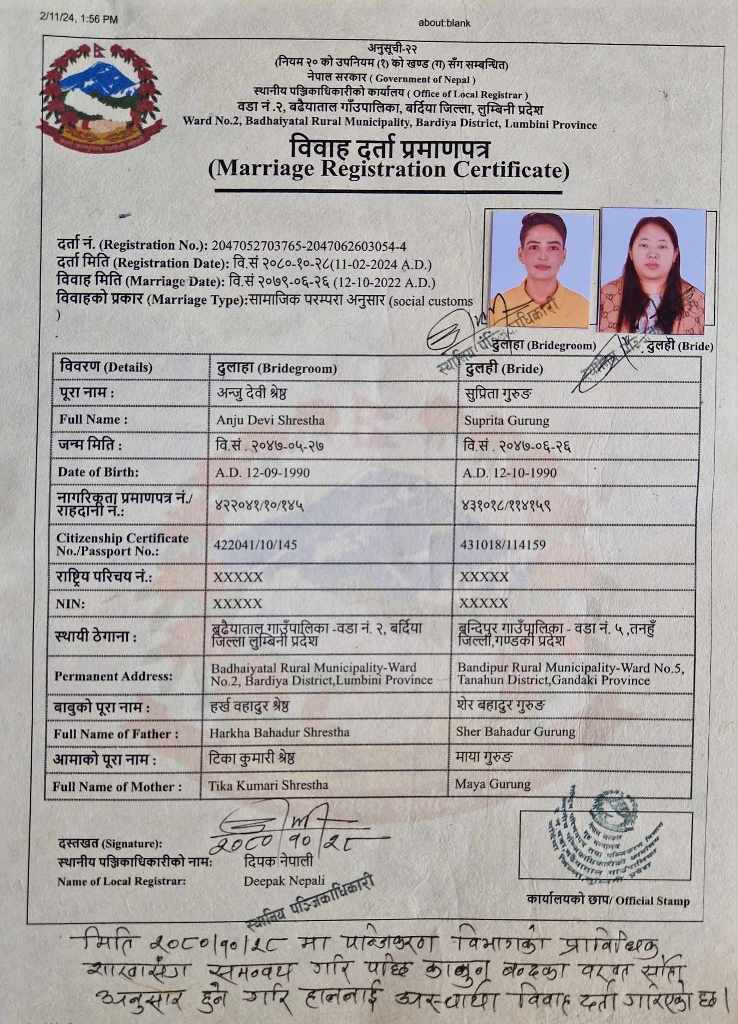 2/11/24, 1:56 PM
about:blank
अनुसूची-२२
(नियम २० को उपनियम (१) को खण्ड (ग) सँग सम्बन्धित)
नेपाल सरकार ( Government of Nepal )
स्थानीय पञ्जिकाधिकारीको कार्यालय ( Office of Local Registrar )
वडा नं .२, बढैयाताल गाउँपालिका, बर्दिया जिल्ला, लुम्बिनी प्रदेश
Ward No.2, Badhaiyatal Rural Municipality, Bardiya District, Lumbini Province
विवाह दर्ता प्रमाणपत्र
(Marriage Registration Certificate)
दर्ता नं. (Registration No.): 2047052703765-2047062603054-4
दर्ता मिति (Registration Date): वि.सं २०८०-१०-२८(11-02-2024 A.D.)
विवाह मिति (Marriage Date): वि.सं २०७९-०६-२६ (12-10-2022 A.D.)
विवाहको प्रकार (Marriage Type):सामाजिक परम्परा अनुसार (social customs
)
स्थानिय पञ्जिकाधिकारी
दुलाहा (Bridegroom) दुलही (Bride)
विवरण (Details) दुलाहा (Bridegroom) दुलही (Bride)
पूरा नाम : अन्जु देवी श्रेष्ठ सुप्रिता गुरुङ
Full Name : Anju Devi Shrestha Suprita Gurung
जन्म मिति : वि.सं . २०४७-०५-२७ वि.सं . २०४७-०६-२६
Date of Birth: A.D. 12-09-1990 A.D. 12-10-1990
नागरिकता प्रमाणपत्र नं./राहदानी नं.: ४२२०४१/१०/१४५ ४३१०१८/११४१५९
Citizenship Certificate No./Passport No.: 422041/10/145 431018/114159
राष्ट्रिय परिचय नं.: XXXXX XXXXX
NIN: XXXXX XXXXX
स्थायी ठेगाना : बढैयाताल गाउँपालिका -वडा नं. २, बर्दिया जिल्ला लुम्बिनी प्रदेश बन्दिपुर गाउँपालिका - वडा नं. ५ ,तनहुँ जिल्ला,गण्डकी प्रदेश
Permanent Address: Badhaiyatal Rural Municipality-Ward No.2, Bardiya District,Lumbini Province Bandipur Rural Municipality-Ward No.5, Tanahun District,Gandaki Province
बाबुको पूरा नाम : हर्ख वहादुर श्रेष्ठ शेर बहादुर गुरुङ
Full Name of Father : Harkha Bahadur Shrestha Sher Bahadur Gurung
आमाको पूरा नाम : टिका कुमारी श्रेष्ठ माया गुरुङ
Full Name of Mother : Tika Kumari Shrestha Maya Gurung
दस्तखत (Signature): २०८०/१०/२८
स्थानीय पञ्जिकाधिकारीको नाम: दिपक नेपाली
Name of Local Registrar: Deepak Nepali
स्थानिय पञ्जिकाधिकारी
कार्यालयको छाप/ Official Stamp
मिति २०८०/१०/२८ मा पञ्जिकरण विभागको प्राविधिक
शाखासँग समन्वय गरि पछि कानुन बन्दका वखत सोहि
अनुसार हुने गरि हाललाई अस्थायी विवाह दर्ता गरिएको छ।